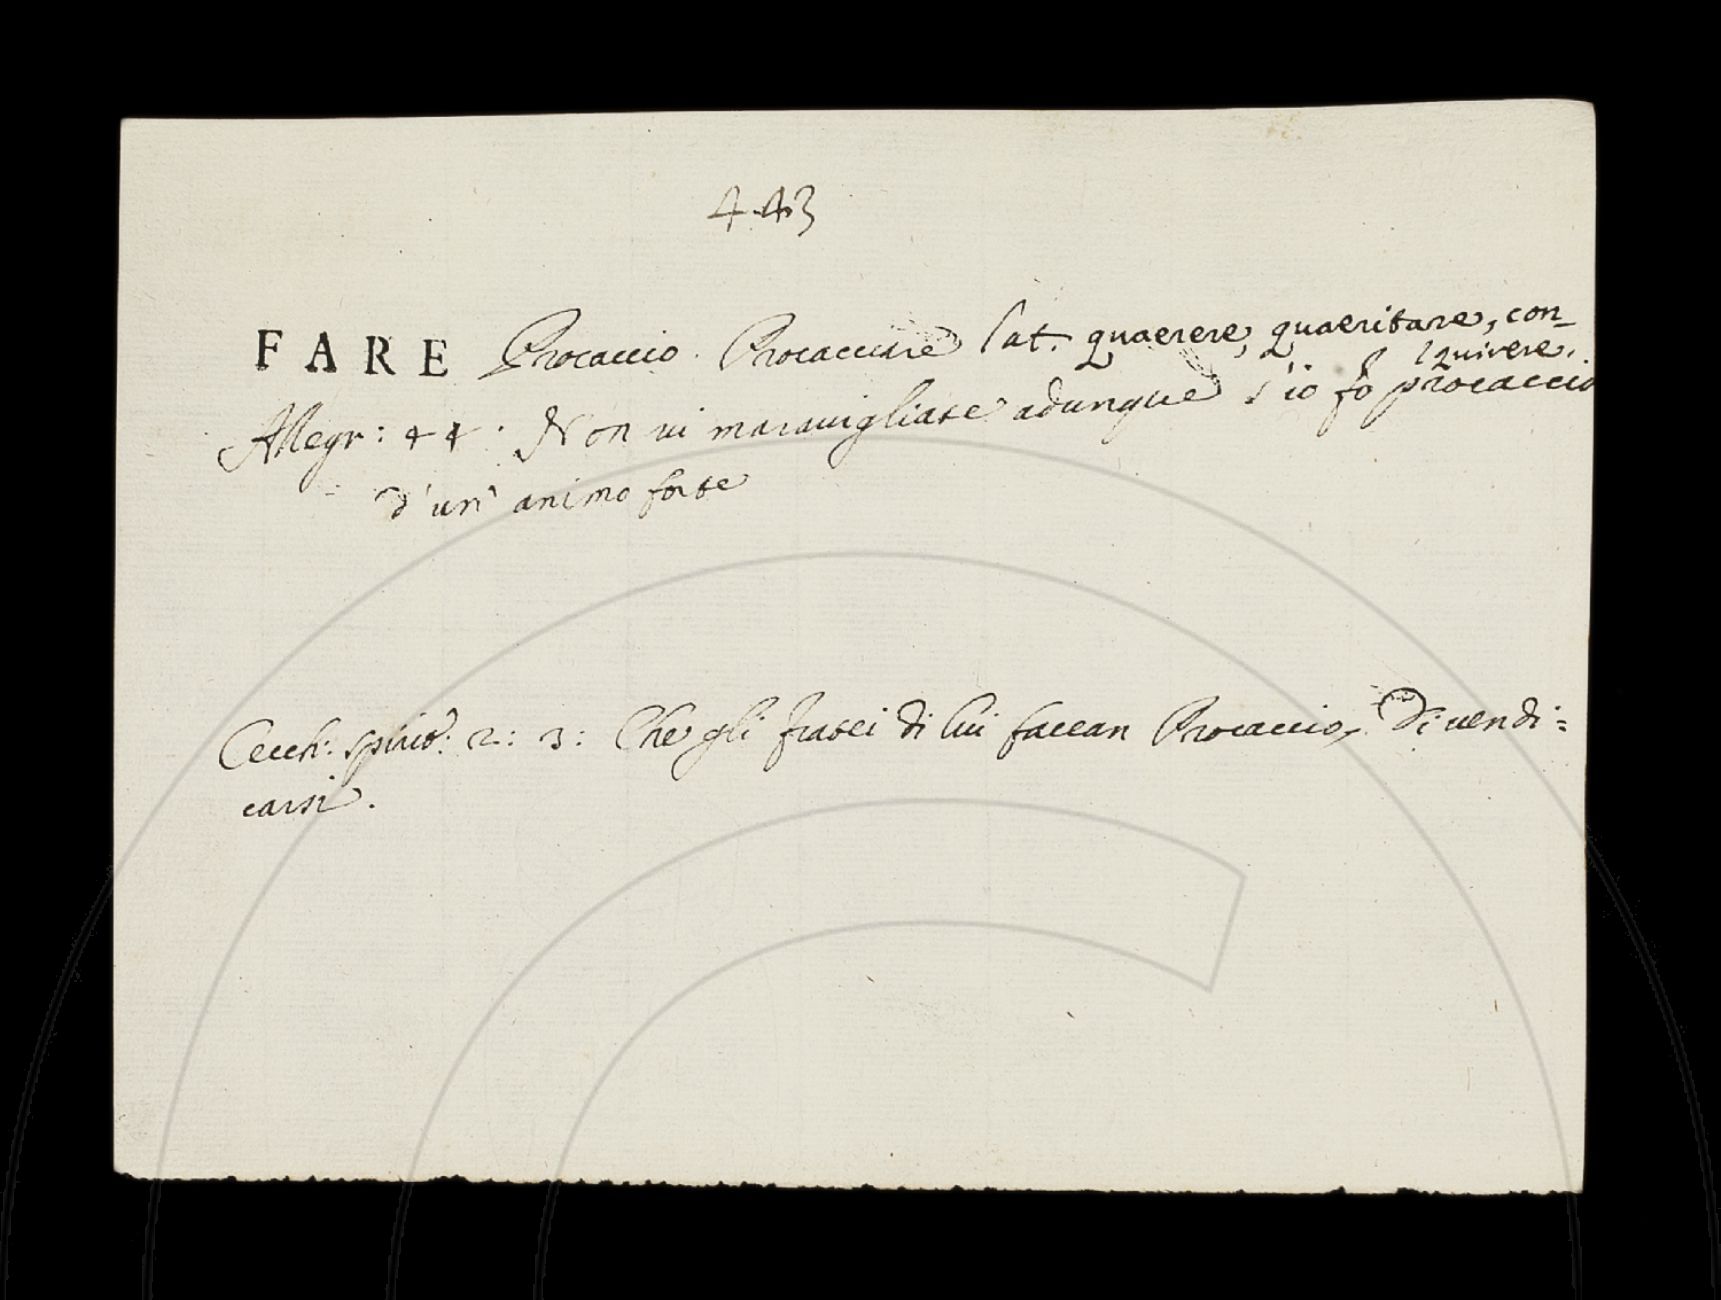 443
FARE Procaccio. Procacciare lat. quaerere, quaeritare, con-
quirere.
Allegr: 44. Non vi maravigliate adunque s'io fo procaccio
d'un' animo forte
Cecch: spirit: 2: 3: Che gli fratei di lui faccan Procaccio, Di vendi:
carsi.